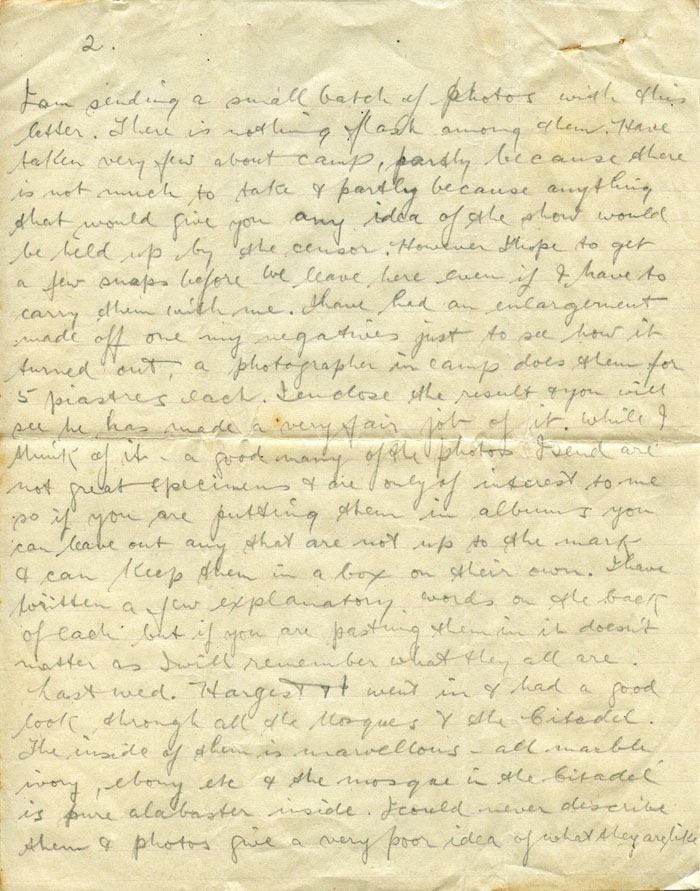 2.
I am sending a small batch of photos with this
letter. There is nothing flash among them. Have
taken very few about camp, partly because there
is not much to take & partly because anything
that would give you any idea of the show would
be held up by the censor. However I hope to get
a few snaps before we leave here even if I have to
carry them with me. I have had an enlargement
made off one my negatives just to see how it
turned out, a photographer in camp does them for
5 piastres each. I enclose the result & you will
see he has made a very fair job of it. While I
think of it - a good many of the photos I send are
not great specimens & are only of interest to me
so if you are putting them in albums you
can leave out any that are not up to the mark
& can keep them in a box on their own. I have
written a few explanatory words on the back
of each but if you are pasting them in it doesn't
matter as I will remember what they all are.
Last wed. Hargest & I went in & had a good
look through all the Mosques & the Citadel.
The inside of them is marvellous - all marble
ivory, ebony etc & the mosque in the Citadel
is pure alabaster inside. I could never describe
them & photos give a very poor idea of what they are like